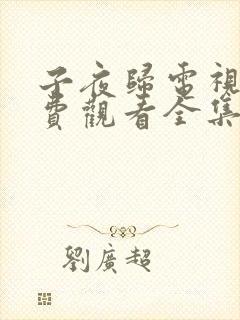 子夜歸電視
費觀看全集
劉廣超